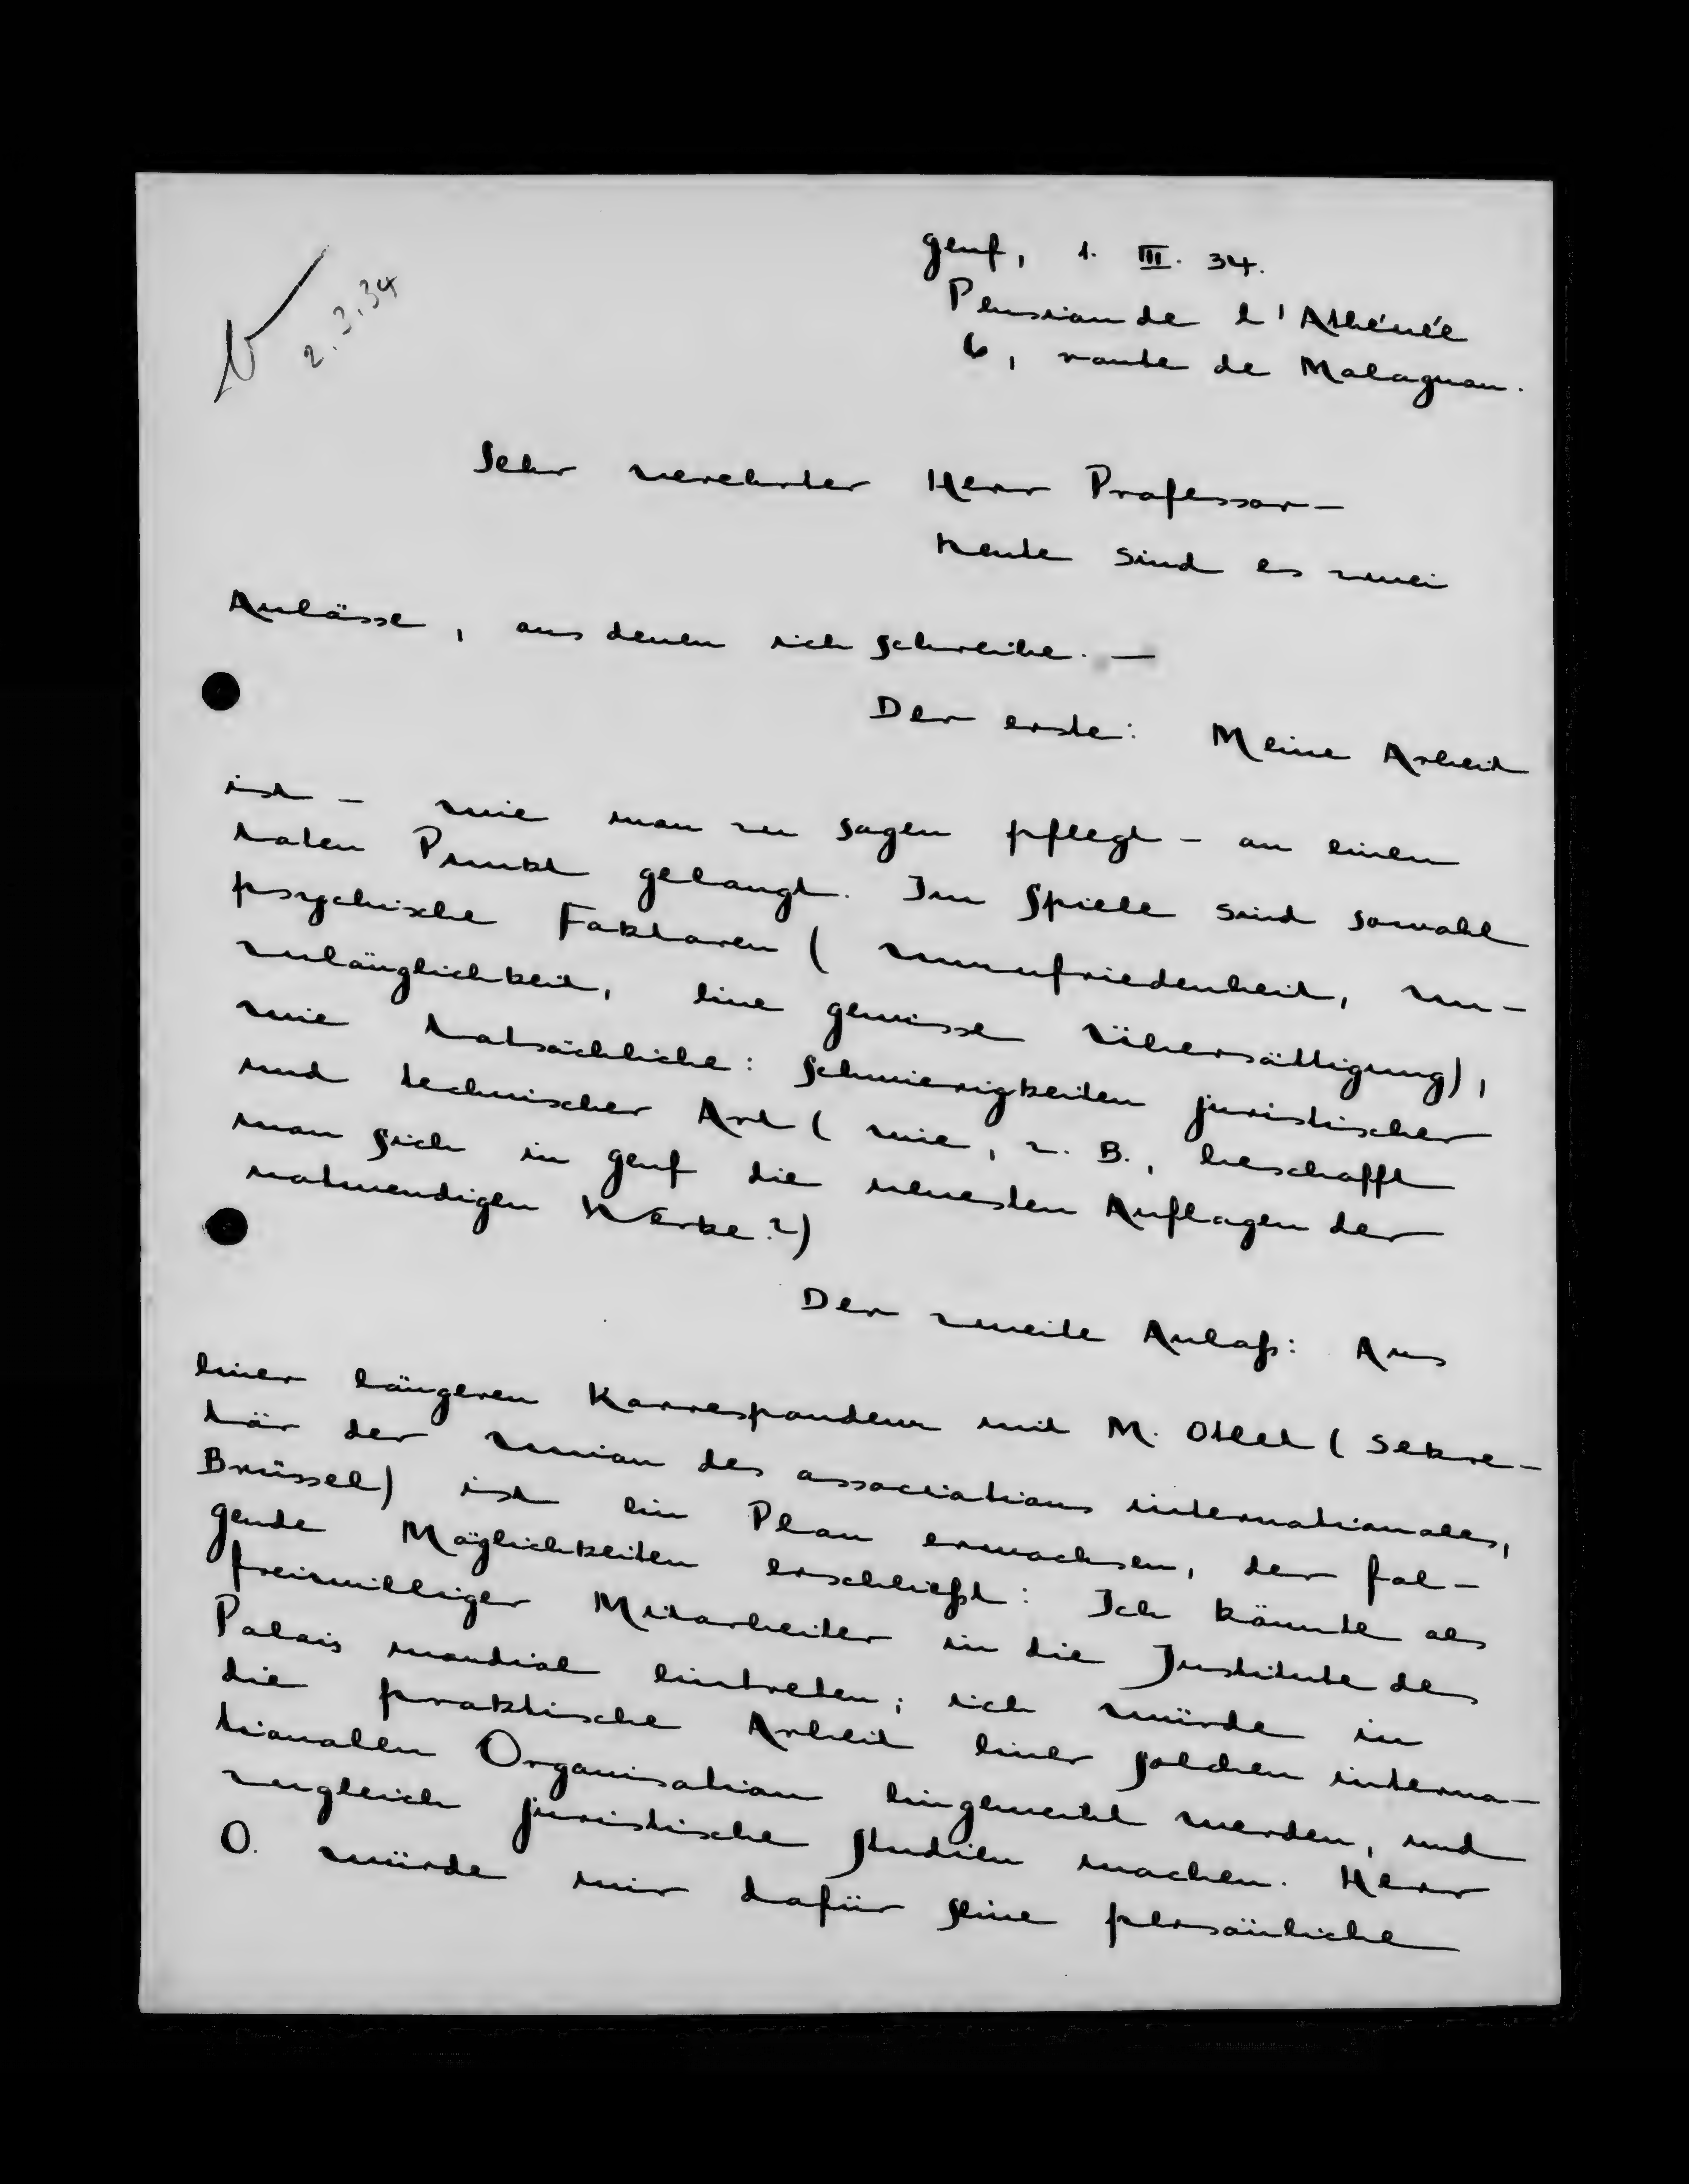 Genf, 1. III. 34.
Pension de l'Athénée
6, route de Malagnou.
2.3.34
Sehr verehrter Herr Professor –
heute sind es zwei
Anlässe, aus denen ich schreibe. –
Der erste: Meine Arbeit
ist – wie man zu sagen pflegt – an einen
toten Punkt gelangt. Im Spiele sind sowohl
psychische Faktoren (Unzufriedenheit, Un-
zulänglichkeit, eine gewisse Übersättigung),
wie tatsächliche: Schwierigkeiten juristischer
und technischer Art (wie, z. B., beschafft
man sich in Genf die neuesten Auflagen der
notwendigen Werke?)
Der zweite Anlaß: Aus
einer längeren Korrespondenz mit M. Otlet (Sekre-
tär der Union des associations internationales,
Brüssel) ist ein Plan erwachsen, der fol-
gende Möglichkeiten erschließt: Ich könnte als
freiwilliger Mitarbeiter in die Institute des
Palais mondial eintreten; ich würde in
die praktische Arbeit einer solchen interna-
tionalen Organisation eingeweiht werden, und
zugleich juristische Studien machen. Herr
O. würde mir dafür seine persönliche